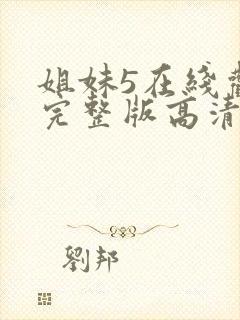 姐妹5在綫觀
完整版高清
劉邦